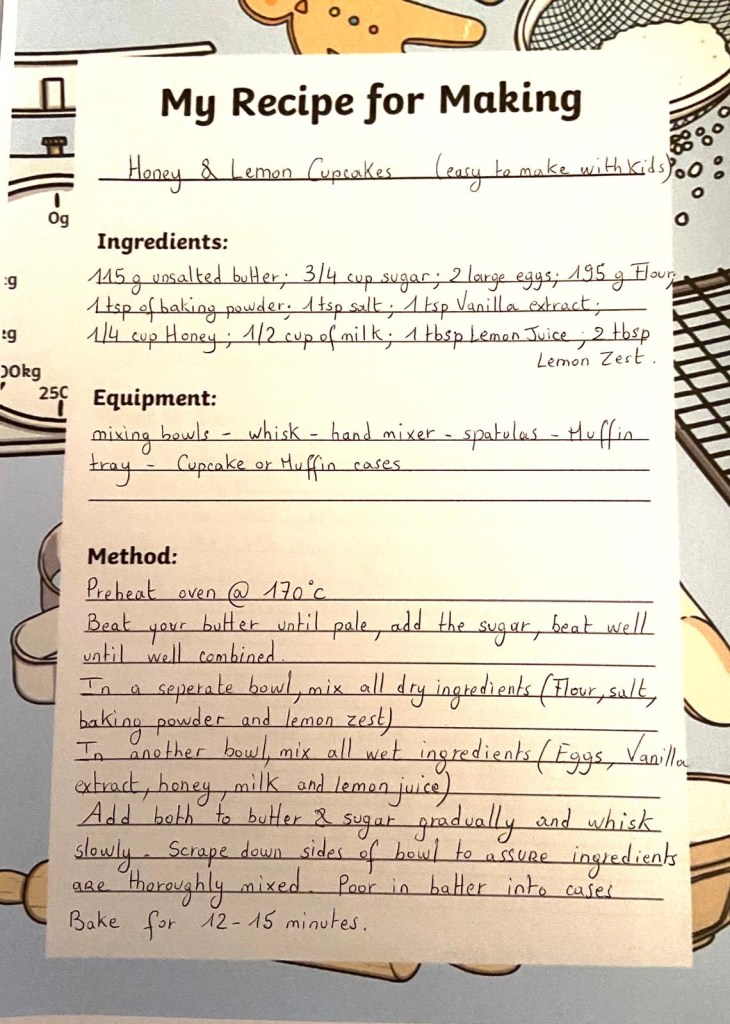 My Recipe for Making
Honey & Lemon Cupcakes (easy to make with kids)
0g
Ingredients:
115 g unsalted butter; 3/4 cup sugar; 2 large eggs; 195 g Flour;
1 tsp of baking powder; 1 tsp salt; 1 tsp Vanilla extract;
1/4 cup Honey; 1/2 cup of milk; 1 tbsp Lemon Juice; 2 tbsp
Lemon Zest.
00kg
250
Equipment:
mixing bowls - whisk - hand mixer - spatulas - Muffin
tray - Cupcake or Muffin cases
Method:
Preheat oven @ 170°c
Beat your butter until pale, add the sugar, beat well
until well combined.
In a seperate bowl, mix all dry ingredients (Flour, salt,
baking powder and lemon zest)
In another bowl, mix all wet ingredients (Eggs, Vanilla
extract, honey, milk and lemon juice)
Add both to butter & sugar gradually and whisk
slowly. Scrape down sides of bowl to assure ingredients
are thoroughly mixed. Poor in batter into cases
Bake for 12-15 minutes.